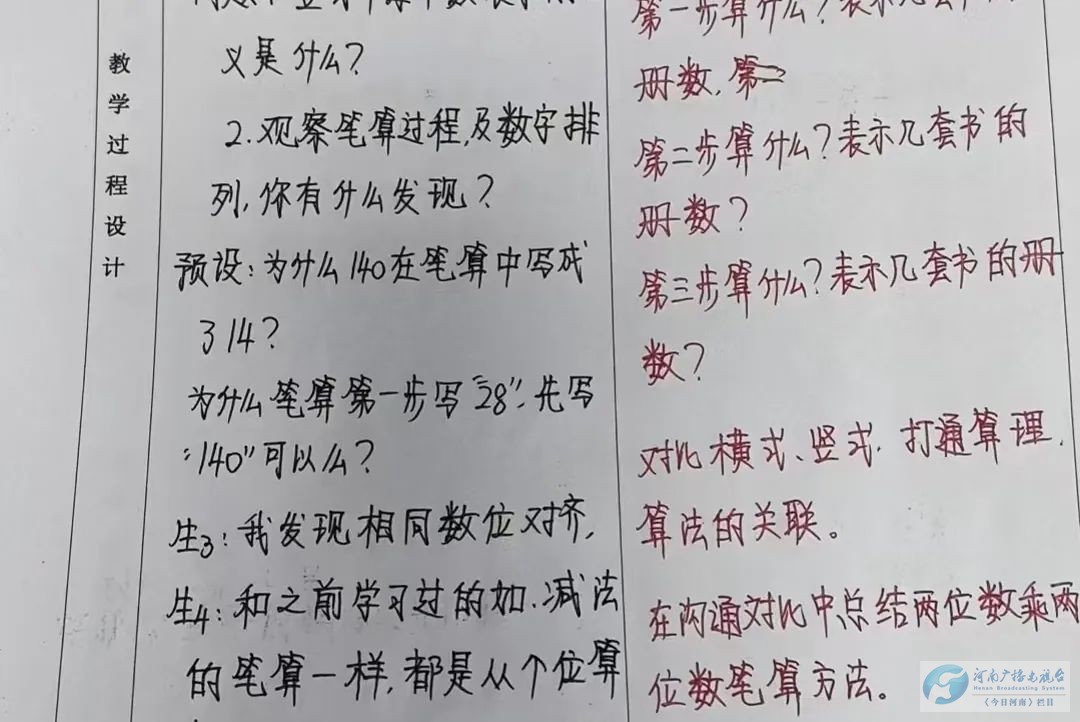 教学过程设计
义是什么?
2.观察笔算过程,及数字排
列,你有什么发现?
预设:为什么140在笔算中写成
314?
为什么笔算第一步写“28”,先写
“140”可以么?
生3:我发现相同数位对齐,
生4:和之前学习过的加、减法
的笔算一样,都是从个位算
第一步算什么?表示几套书的
册数,第二
第二步算什么?表示几套书的
册数?
第三步算什么?表示几套书的册
数?
对比横式、竖式,打通算理,
算法的关联。
在沟通对比中总结两位数乘两
位数笔算方法。
河南广播电视台
Henan Broadcasting System
《今日河南》栏目